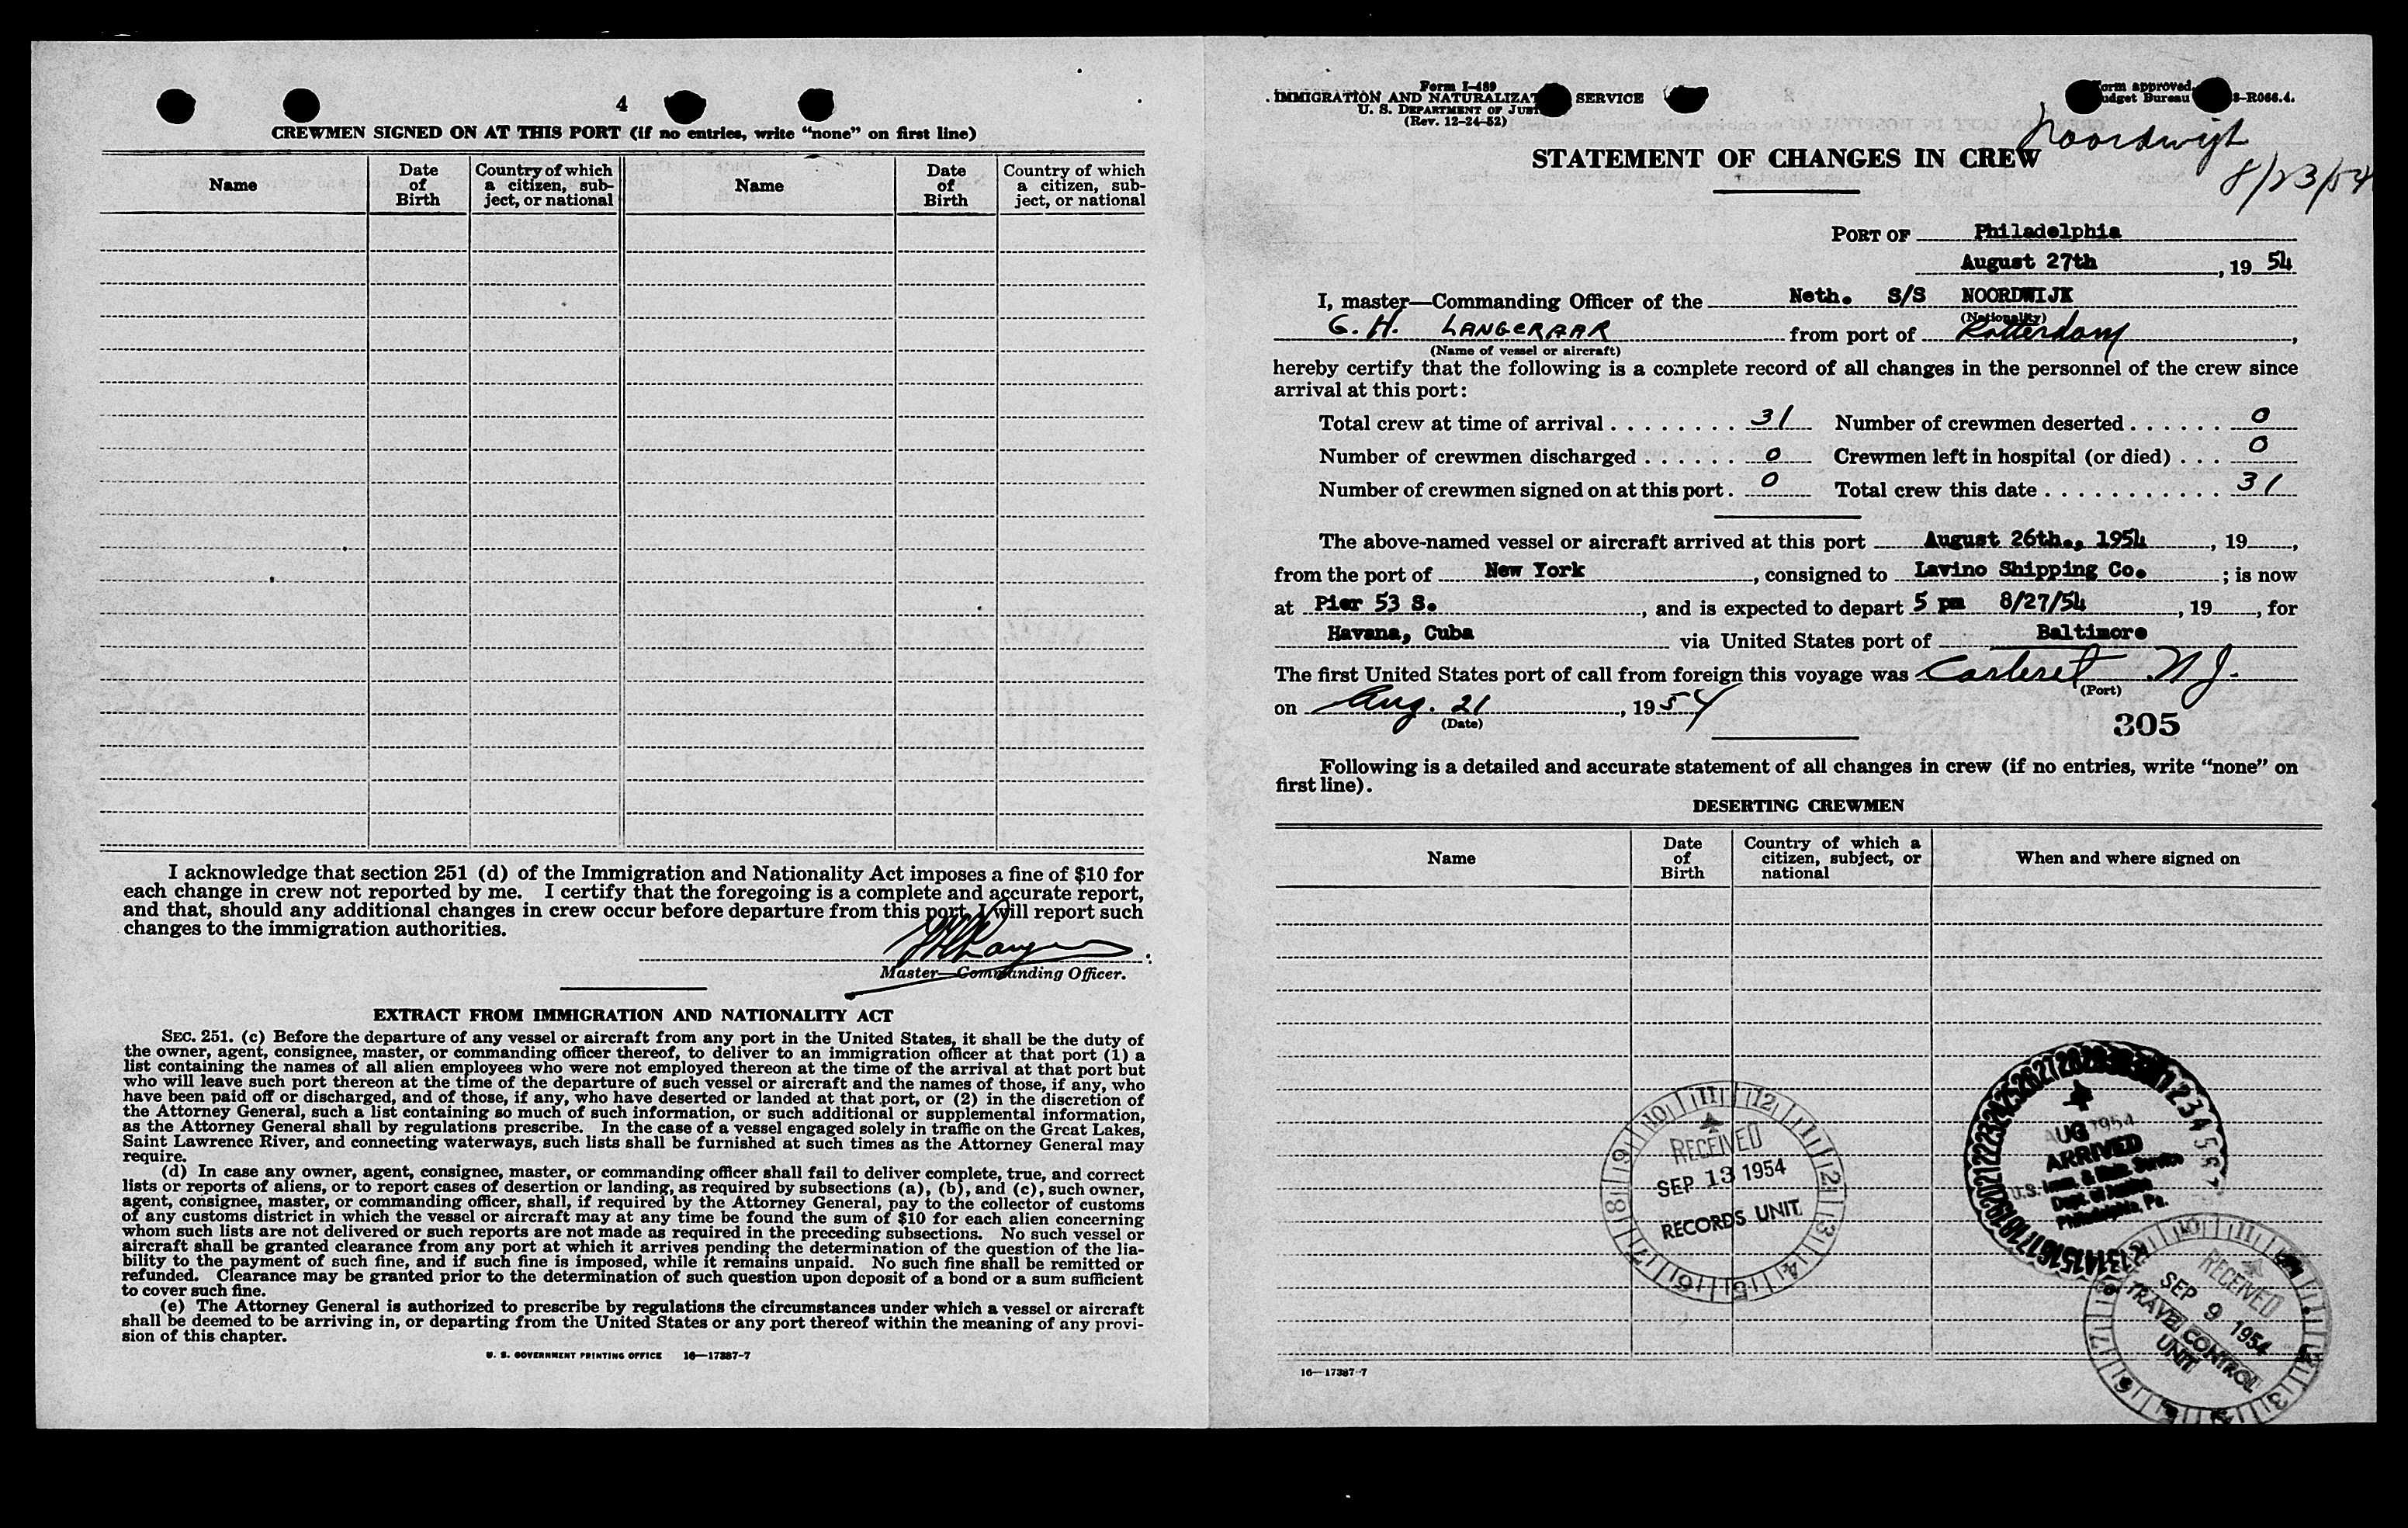 4
CREWMEN SIGNED ON AT THIS PORT (if no entries, write “none” on first line)
Name
Date of Birth
Country of which a citizen, sub-ject, or national
Name
Date of Birth
Country of which a citizen, sub-ject, or national
I acknowledge that section 251 (d) of the Immigration and Nationality Act imposes a fine of $10 for
each change in crew not reported by me. I certify that the foregoing is a complete and accurate report,
and that, should any additional changes in crew occur before departure from this port, I will report such
changes to the immigration authorities.
Master—Commanding Officer.
EXTRACT FROM IMMIGRATION AND NATIONALITY ACT
SEC. 251. (c) Before the departure of any vessel or aircraft from any port in the United States, it shall be the duty of
the owner, agent, consignee, master, or commanding officer thereof, to deliver to an immigration officer at that port (1) a
list containing the names of all alien employees who were not employed thereon at the time of the arrival at that port but
who will leave such port thereon at the time of the departure of such vessel or aircraft and the names of those, if any, who
have been paid off or discharged, and of those, if any, who have deserted or landed at that port, or (2) in the discretion of
the Attorney General, such a list containing so much of such information, or such additional or supplemental information,
as the Attorney General shall by regulations prescribe. In the case of a vessel engaged solely in traffic on the Great Lakes,
Saint Lawrence River, and connecting waterways, such lists shall be furnished at such times as the Attorney General may
require.
(d) In case any owner, agent, consignee, master, or commanding officer shall fail to deliver complete, true, and correct
lists or reports of aliens, or to report cases of desertion or landing, as required by subsections (a), (b), and (c), such owner,
agent, consignee, master, or commanding officer, shall, if required by the Attorney General, pay to the collector of customs
of any customs district in which the vessel or aircraft may at any time be found the sum of $10 for each alien concerning
whom such lists are not delivered or such reports are not made as required in the preceding subsections. No such vessel or
aircraft shall be granted clearance from any port at which it arrives pending the determination of the question of the lia-
bility to the payment of such fine, and if such fine is imposed, while it remains unpaid. No such fine shall be remitted or
refunded. Clearance may be granted prior to the determination of such question upon deposit of a bond or a sum sufficient
to cover such fine.
(e) The Attorney General is authorized to prescribe by regulations the circumstances under which a vessel or aircraft
shall be deemed to be arriving in, or departing from the United States or any port thereof within the meaning of any provi-
sion of this chapter.
U. S. GOVERNMENT PRINTING OFFICE 16—17387-7
Form I-489
IMMIGRATION AND NATURALIZAT SERVICE
U. S. DEPARTMENT OF JUST
(Rev. 12-24-52)
orm approved.
udget Bureau -R066.4.
Noordwijk
8/23/54
STATEMENT OF CHANGES IN CREW
PORT OF Philadelphia
August 27th, 19 54
I, master—Commanding Officer of the Neth. S/S NOORDWIJK
(Nationality)
G. H. LANGERAAR from port of Rotterdam,
(Name of vessel or aircraft)
hereby certify that the following is a complete record of all changes in the personnel of the crew since
arrival at this port:
Total crew at time of arrival . . . . . . . . 31 Number of crewmen deserted . . . . . . 0
Number of crewmen discharged . . . . . . 0 Crewmen left in hospital (or died) . . . 0
Number of crewmen signed on at this port . 0 Total crew this date . . . . . . . . . . . 31
The above-named vessel or aircraft arrived at this port August 26th., 1954, 19 ,
from the port of New York, consigned to Lavino Shipping Co. ; is now
at Pier 53 S. , and is expected to depart 5 pm 8/27/54, 19 , for
Havana, Cuba via United States port of Baltimore
The first United States port of call from foreign this voyage was Carteret N J.
(Port)
on Aug. 21, 1954
(Date)
305
Following is a detailed and accurate statement of all changes in crew (if no entries, write “none” on
first line).
DESERTING CREWMEN
Name
Date of Birth
Country of which a citizen, subject, or national
When and where signed on
RECEIVED
SEP 13 1954
RECORDS UNIT
AUG 1954
ARRIVED
U.S. Imm. & Natz. Service
Dept. of Justice
Philadelphia, Pa.
RECEIVED
SEP 9 1954
TRAVEL CONTROL
UNIT
16—17387-7